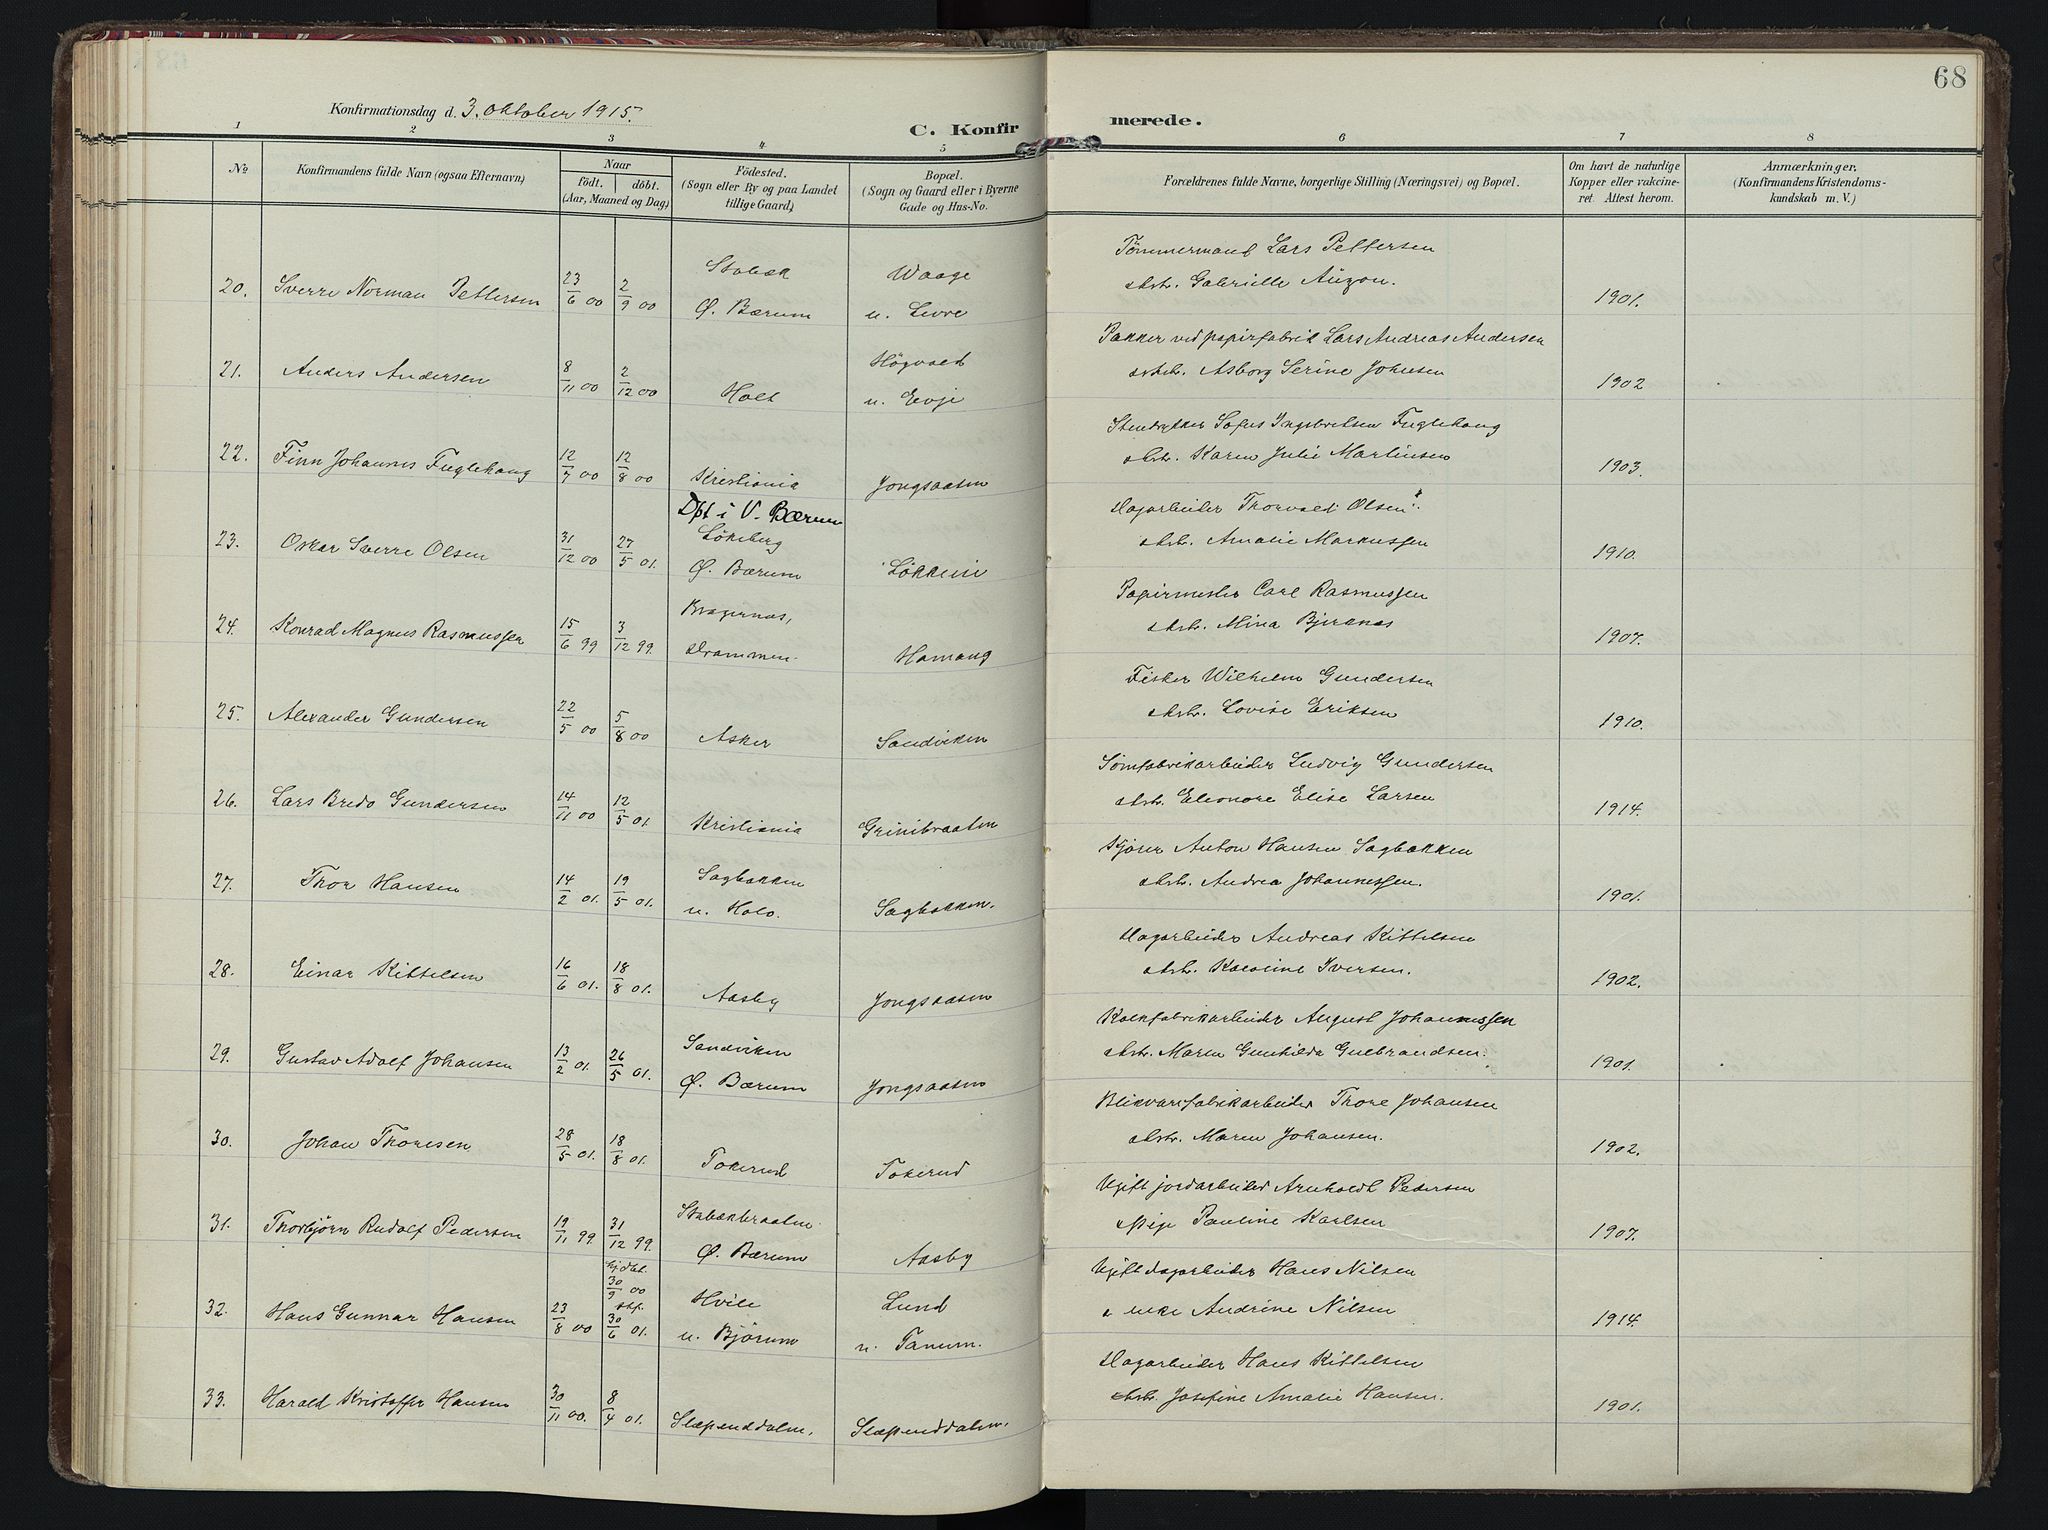 68
Konfirmationsdag d. 3. oktober 1915.
C. Konfirmerede.
1 2 3 4 5 6 7 8
No
Konfirmandens fulde Navn (ogsaa Efternavn)
Naar
födt. döbt.
(Aar, Maaned og Dag)
Födested.
(Sogn eller By og paa Landet
tillige Gaard)
Bopæl.
(Sogn og Gaard eller i Byerne
Gade og Hus-No.
Forældrenes fulde Navne, borgerlige Stilling (Næringsvei) og Bopæl.
Om havt de naturlige
Kopper eller vakcine-
ret. Attest herom.
Anmærkninger.
(Konfirmandens Kristendoms-
kundskab m. V.)
Stabæk Waage Tømmermand Lars Pettersen
20. Sverre Norman Pettersen 23/6 00 2/9 00 Ø. Bærum u. Levre Gabrielle Auzon. 1901.
Høgvold Pakker ved papirfabrik Lars Andreas Andersen
21. Anders Andersen 8/11 00 2/12 00 Holt u. Evje Asborg Serine Johnsen 1902
Sofus Ingebretsen Fuglehaug
22. Finn Johannes Fuglehaug 12/7 00 12/8 00 Kristiania Jongsaasen Karen Julie Martinsen 1903.
Dpt i V. Bærum
Løkeberg Dagarbeider Thorvald Olsen
23. Oskar Sverre Olsen 31/12 00 27/5 01. Ø. Bærum Løkkeni Amalie Markussen 1910.
Bragernas, Papirmester Carl Rasmussen
24. Konrad Magnus Rasmussen 15/6 99 3/12 99. Drammen. Hamang Mina Bjernas 1907.
Fisker Wilhelm Gundersen
25. Alexander Gundersen 22/5 00 5/8 00 Asker Sandviken Lovise Eriksen 1910.
Sømfabrikarbeider Ludvig Gundersen
26. Lars Bredo Gundersen 14/11 00 12/5 01. Kristiania Grinibraaten Eleonore Elise Larsen 1914.
Sagbakken Kjører Anton Hansen Sagbakken
27. Thor Hansen 14/2 01. 19/5 01. u. Holo. Sagbakken. Andrea Johannessen. 1901.
Dagarbeider Andreas Kittelsen
28. Einar Kittelsen 16/6 01. 18/8 01. Aasby Jongsaasen Karoline Iversen. 1902.
Sandviken Kalkfabrikarbeider August Johannessen
29. Gustav Adolf Johansen 13/2 01. 26/5 01. Ø. Bærum Jongsaasen Maren Gunhilda Gulbrandsen. 1901.
Blikvarefabrikarbeider Thore Johansen
30. Johan Thoresen 28/5 01. 18/8 01. Tokerud Tokerud Maren Johansen. 1902.
Stabækbraaten. Ugift jordarbeider Arnholdt Pedersen
31. Thorbjørn Rudolf Pedersen 19/11 99. 31/12 99. Ø. Bærum Aasby Pige Pauline Karlsen 1907.
hjdbt. 30/9 00 Hvile Lund Ugift dagarbeider Hans Nilsen
32. Hans Gunnar Hansen 23/8 00 stf. 30/6 01. u. Bjørum u. Tanum. enke Andrine Nilsen 1914.
Dagarbeider Hans Kittelsen
33. Harald Kristoffer Hansen 30/11 00. 8/4 01. Slæpenddalen. Slæpenddalen. Josefine Amalie Hansen. 1901.